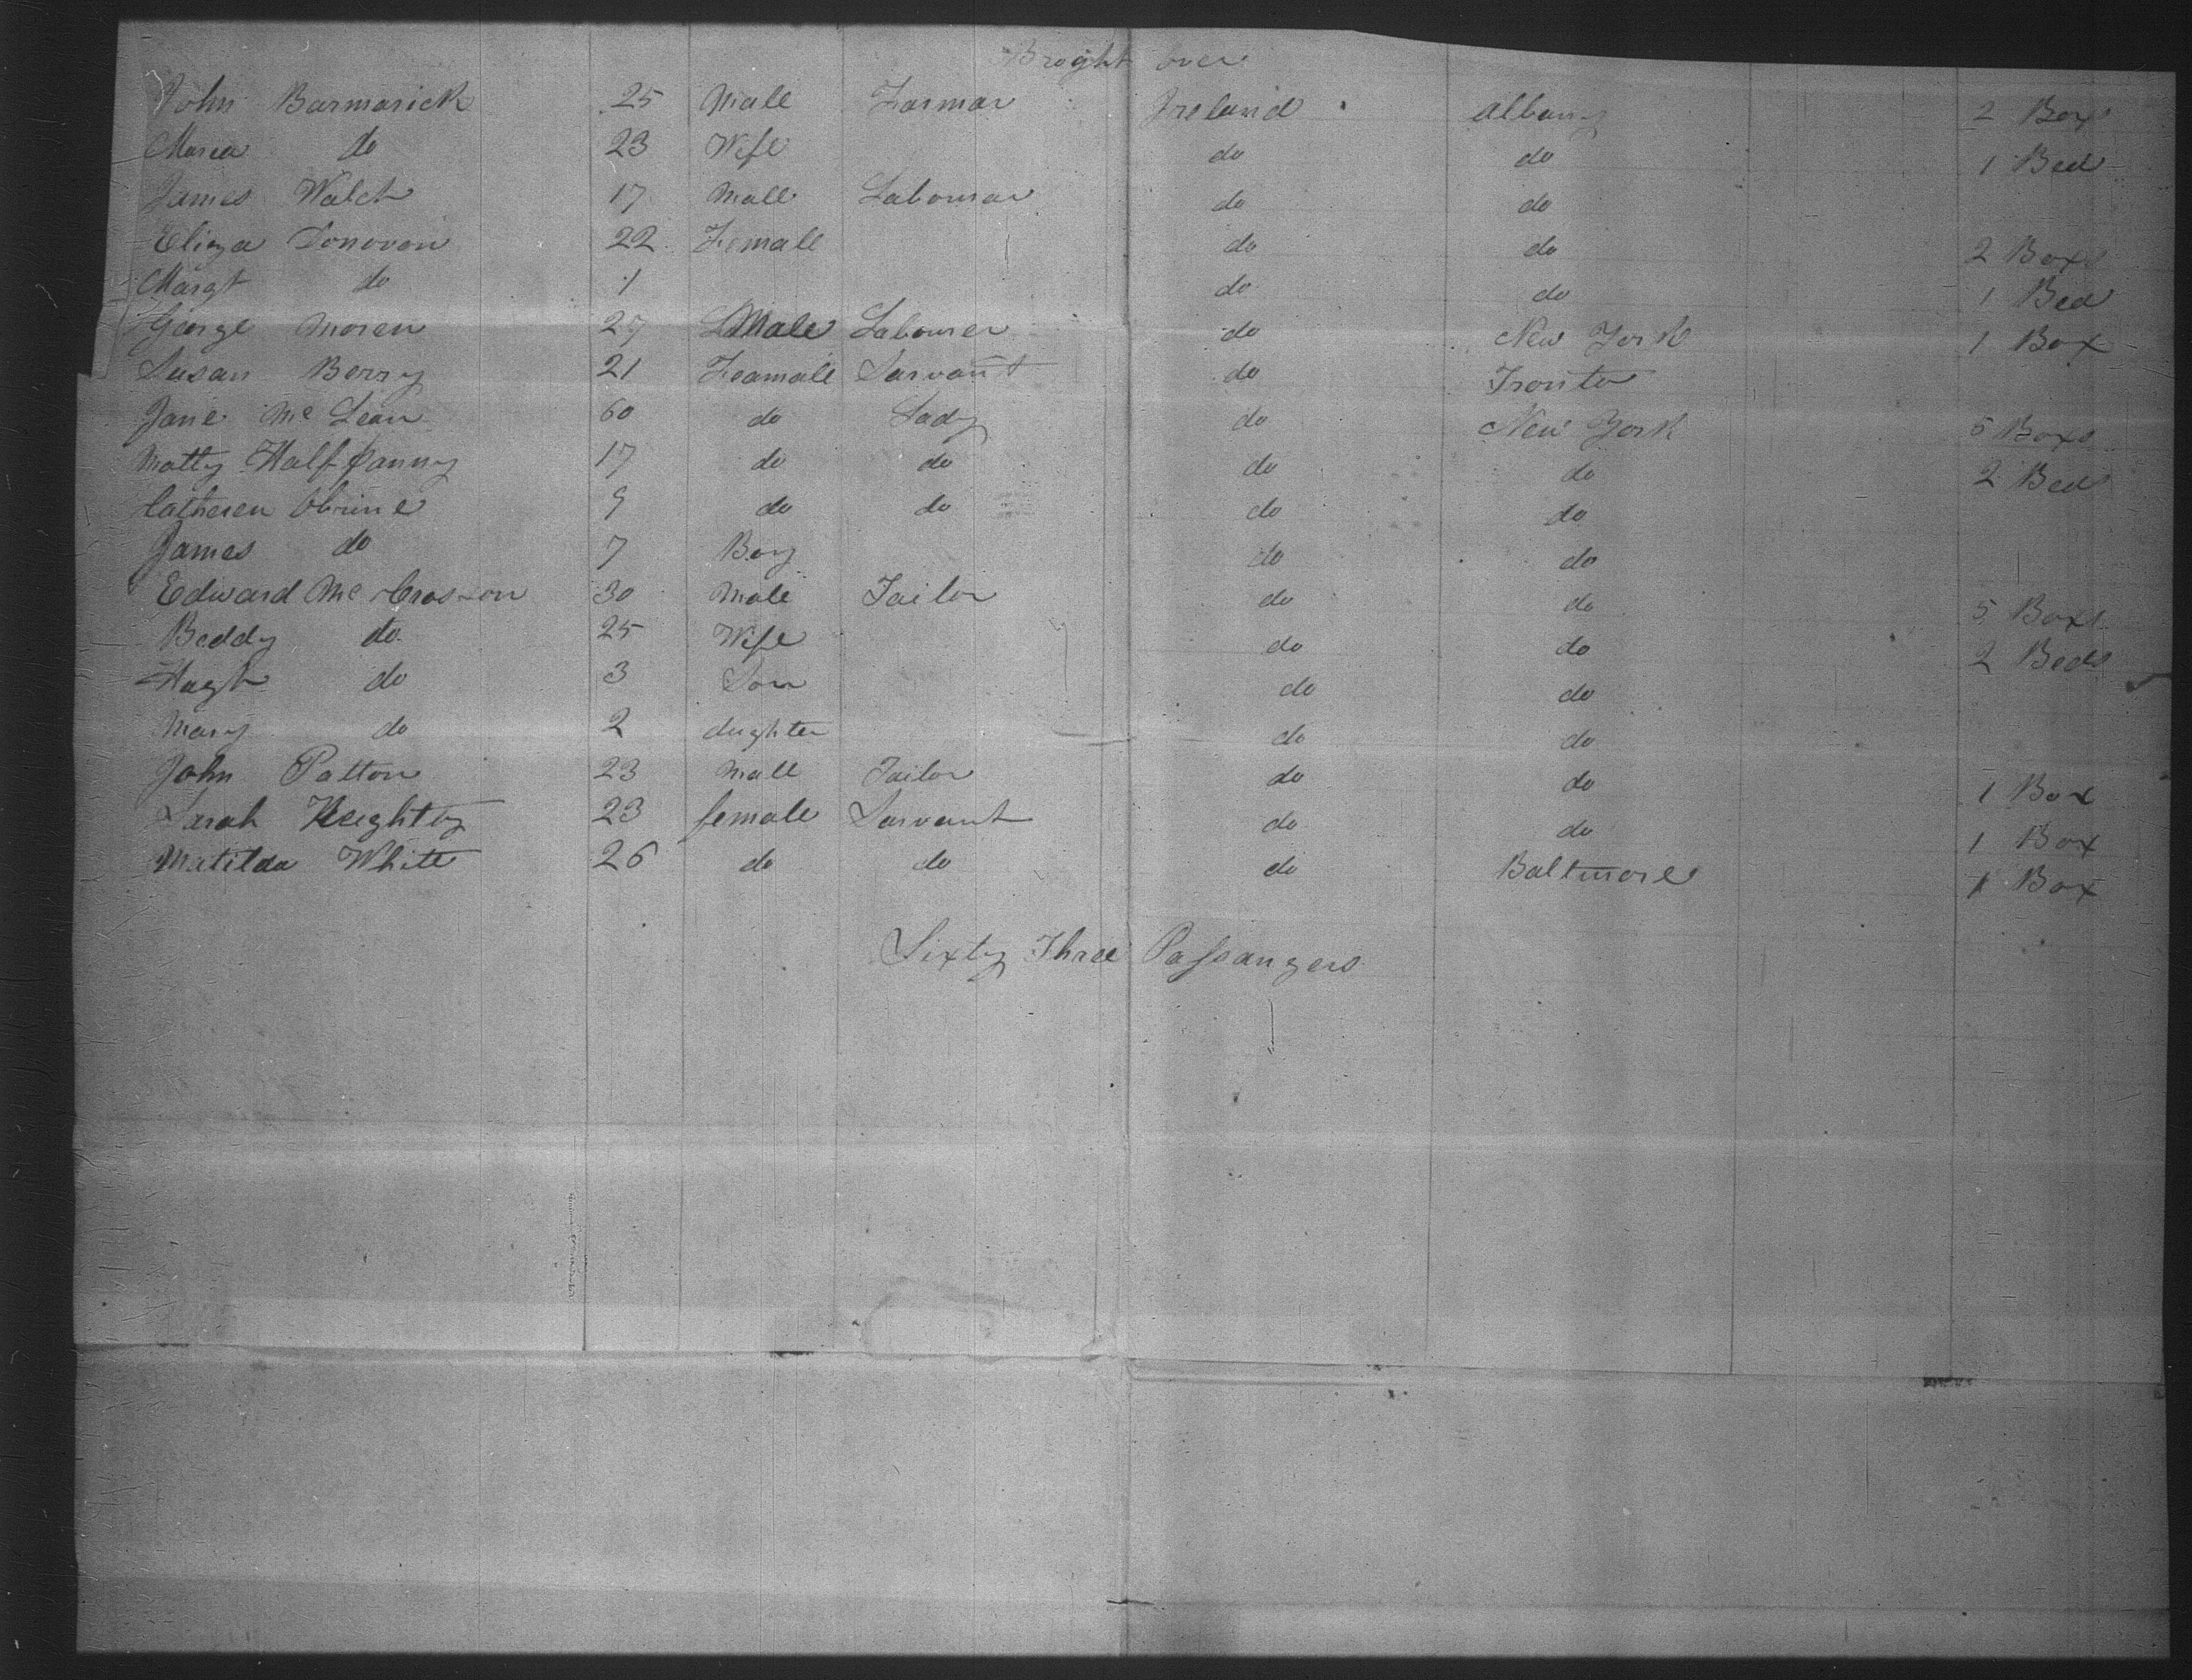 Broght over
John Barmarick 25 Male Farmar Ireland Albany 2 Boxs
Maria do 23 Wife do do 1 Bed
James Walch 17 Male Labourar do do
Eliza Donovon 22 Female do do 2 Boxs
Margt do 1 do do 1 Bed
George Moren 27 Male Labourer do New York 1 Box
Susan Berry 21 Feamale Sarvant do Tronto
Jane Mc Lean 60 do Lady do New York 5 Boxs
Matty Halfpanny 17 do do do do 2 Beds
Catheren Obrine 9 do do do do
James do 7 Boy do do
Edward Mc Crosson 30 Male Tailor do do 5 Boxs
Beddy do 25 Wife do do 2 Beds
Hugh do 3 Son do do
Mary do 2 dughter do do
John Patton 23 Male Tailor do do 1 Box
Sarah Heighty 23 female Sarvant do do 1 Box
Matilda White 26 do do do Baltmore 1 Box
Sixty Three Passangers